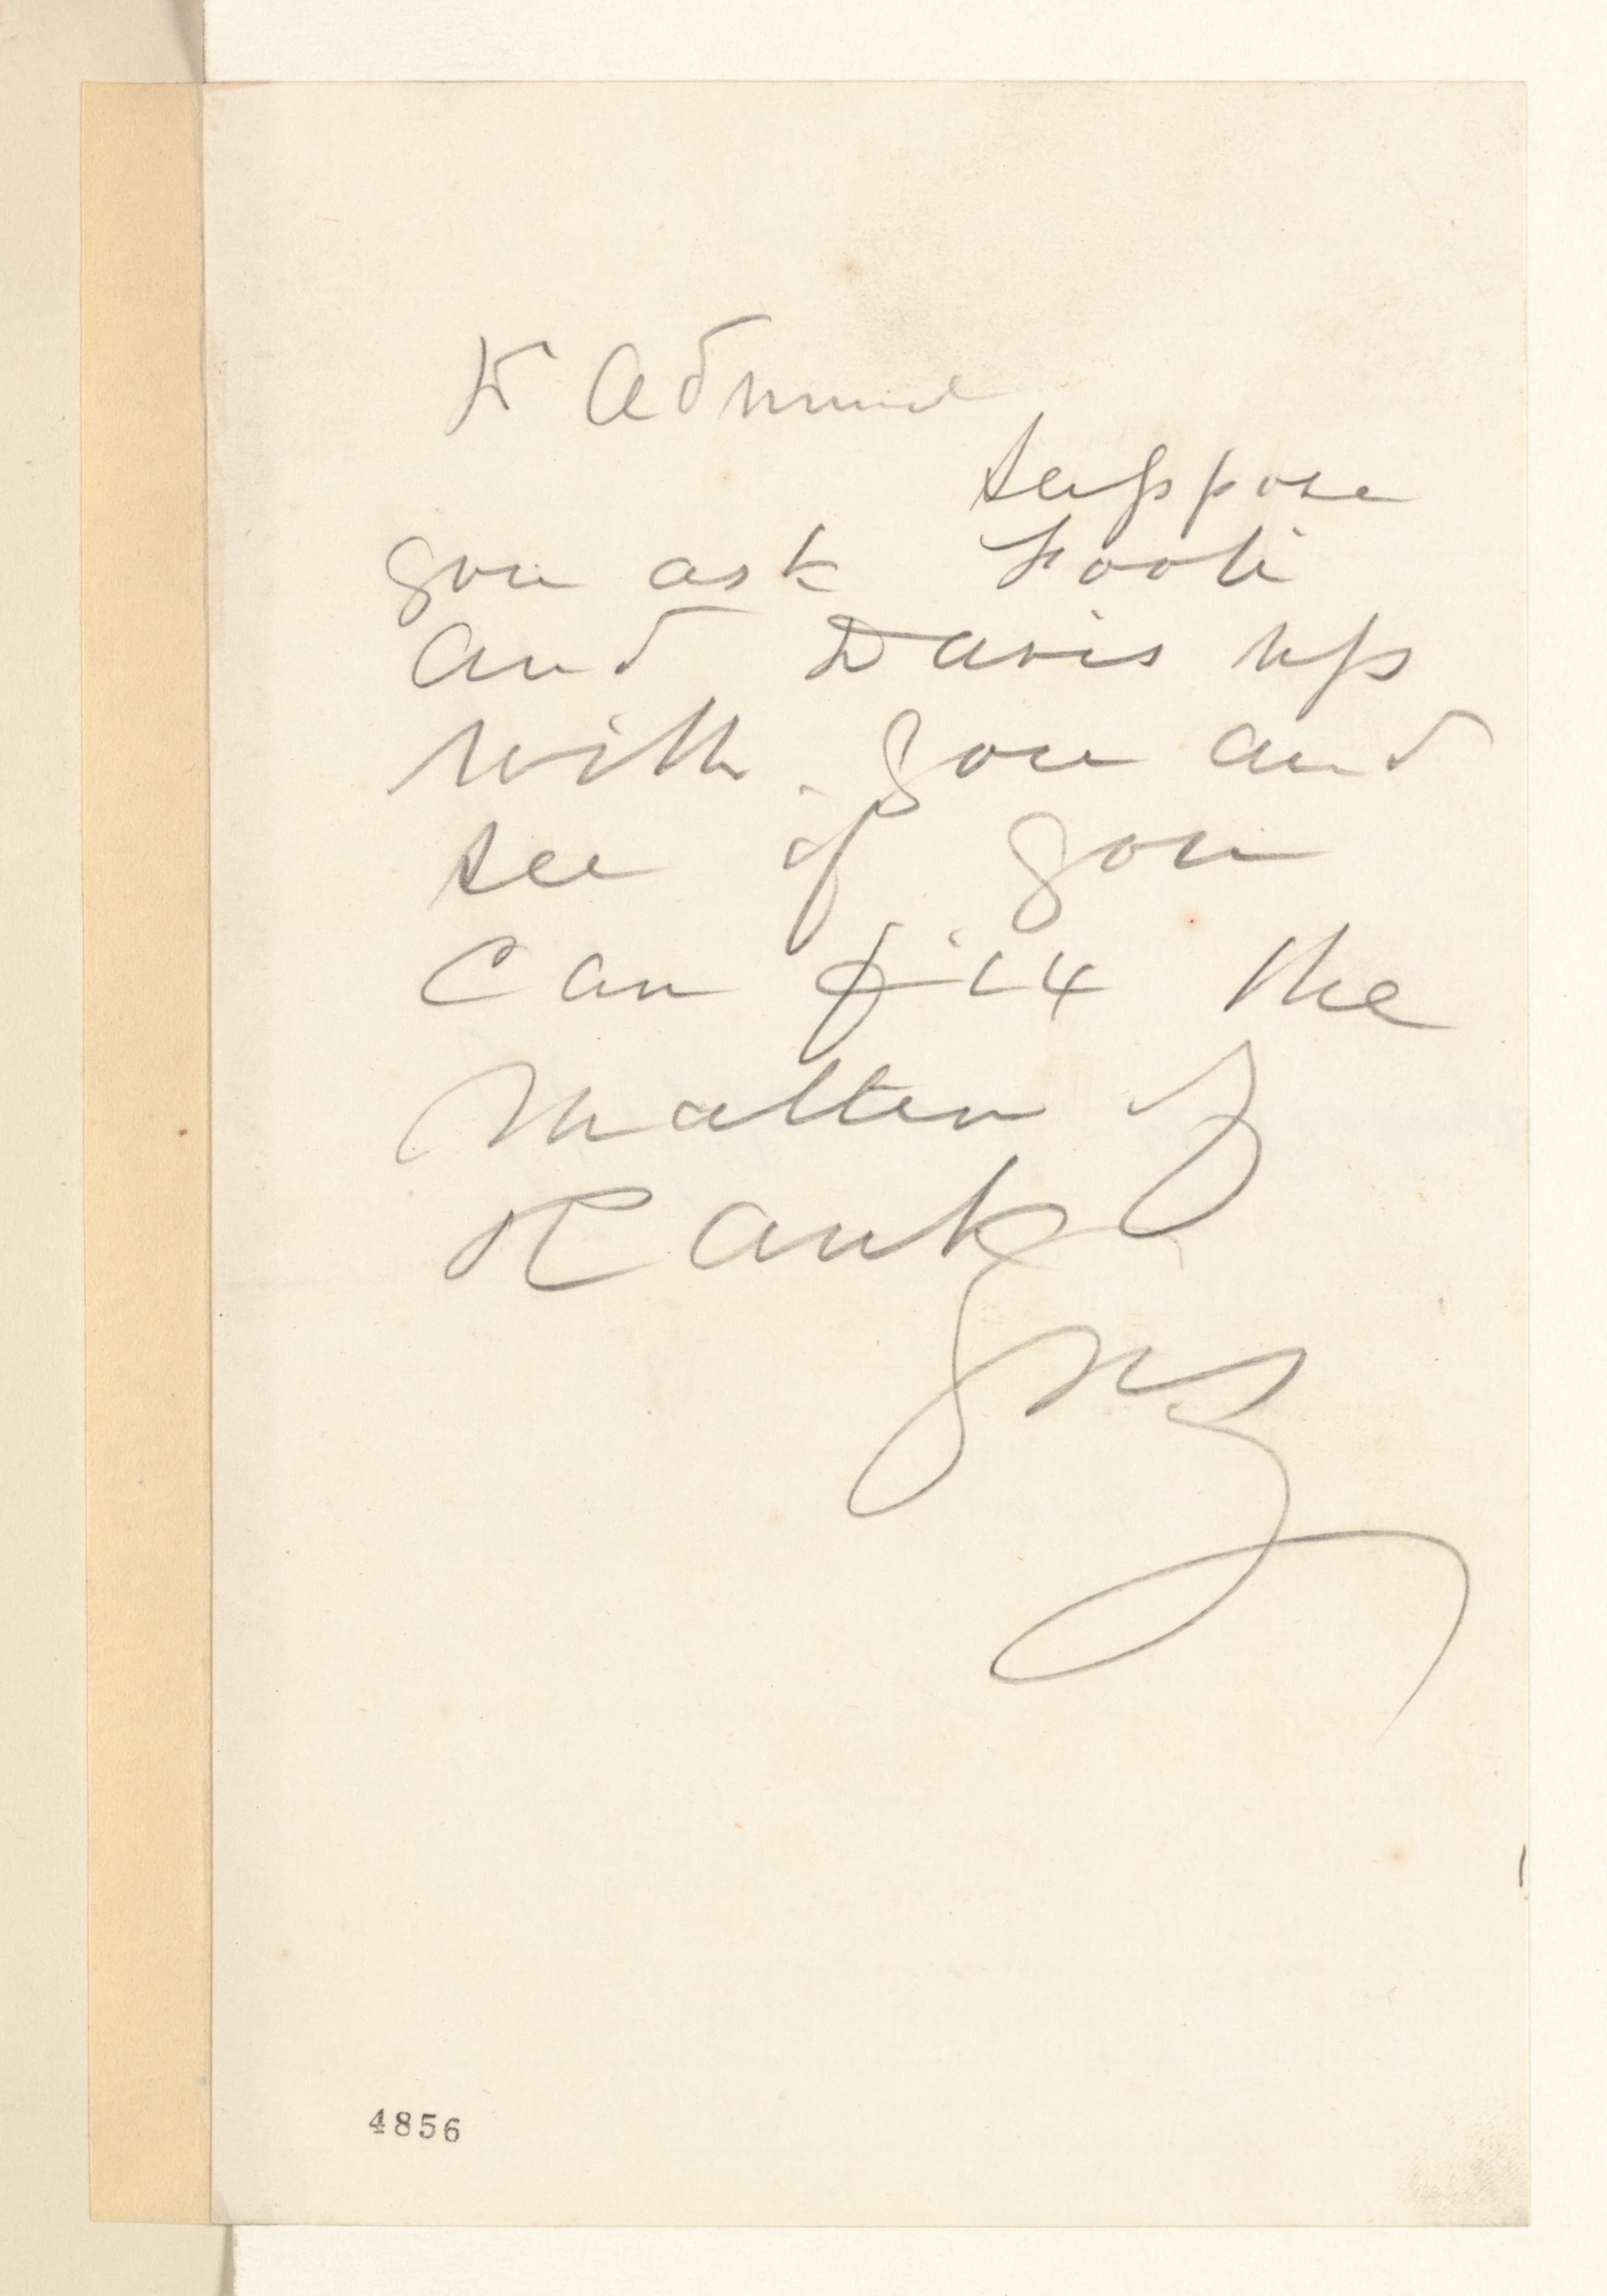 Dr Admiral
Suppose
you ask Foote
and Davis up
with you and
see if you
can fix the
matter of
Rank
4856